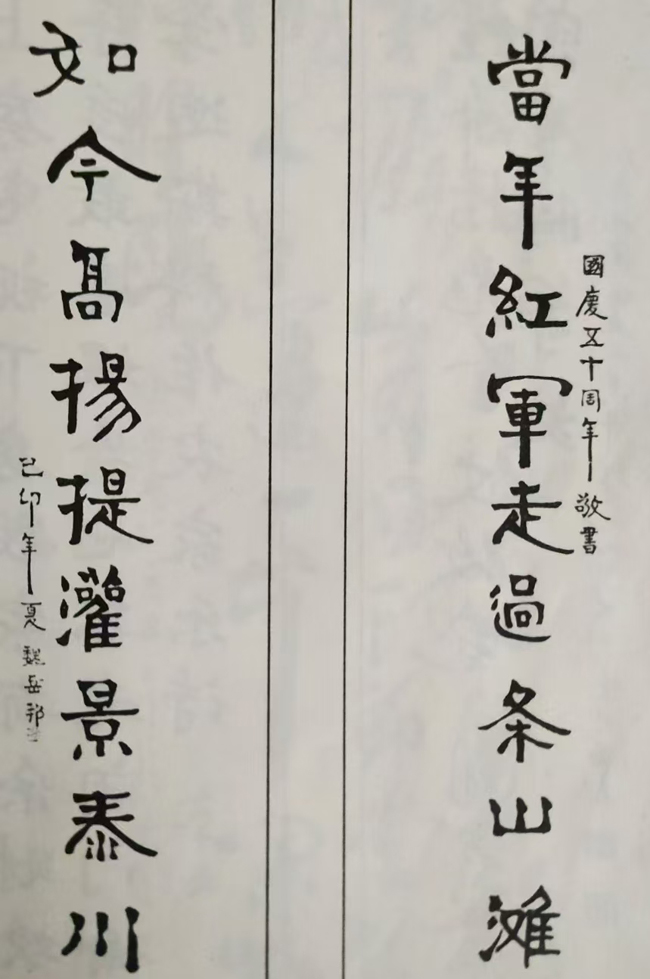 國慶五十周年敬書
當年紅軍走過条山灘
如今高揚提灌景泰川
己卯年夏魏岳邦